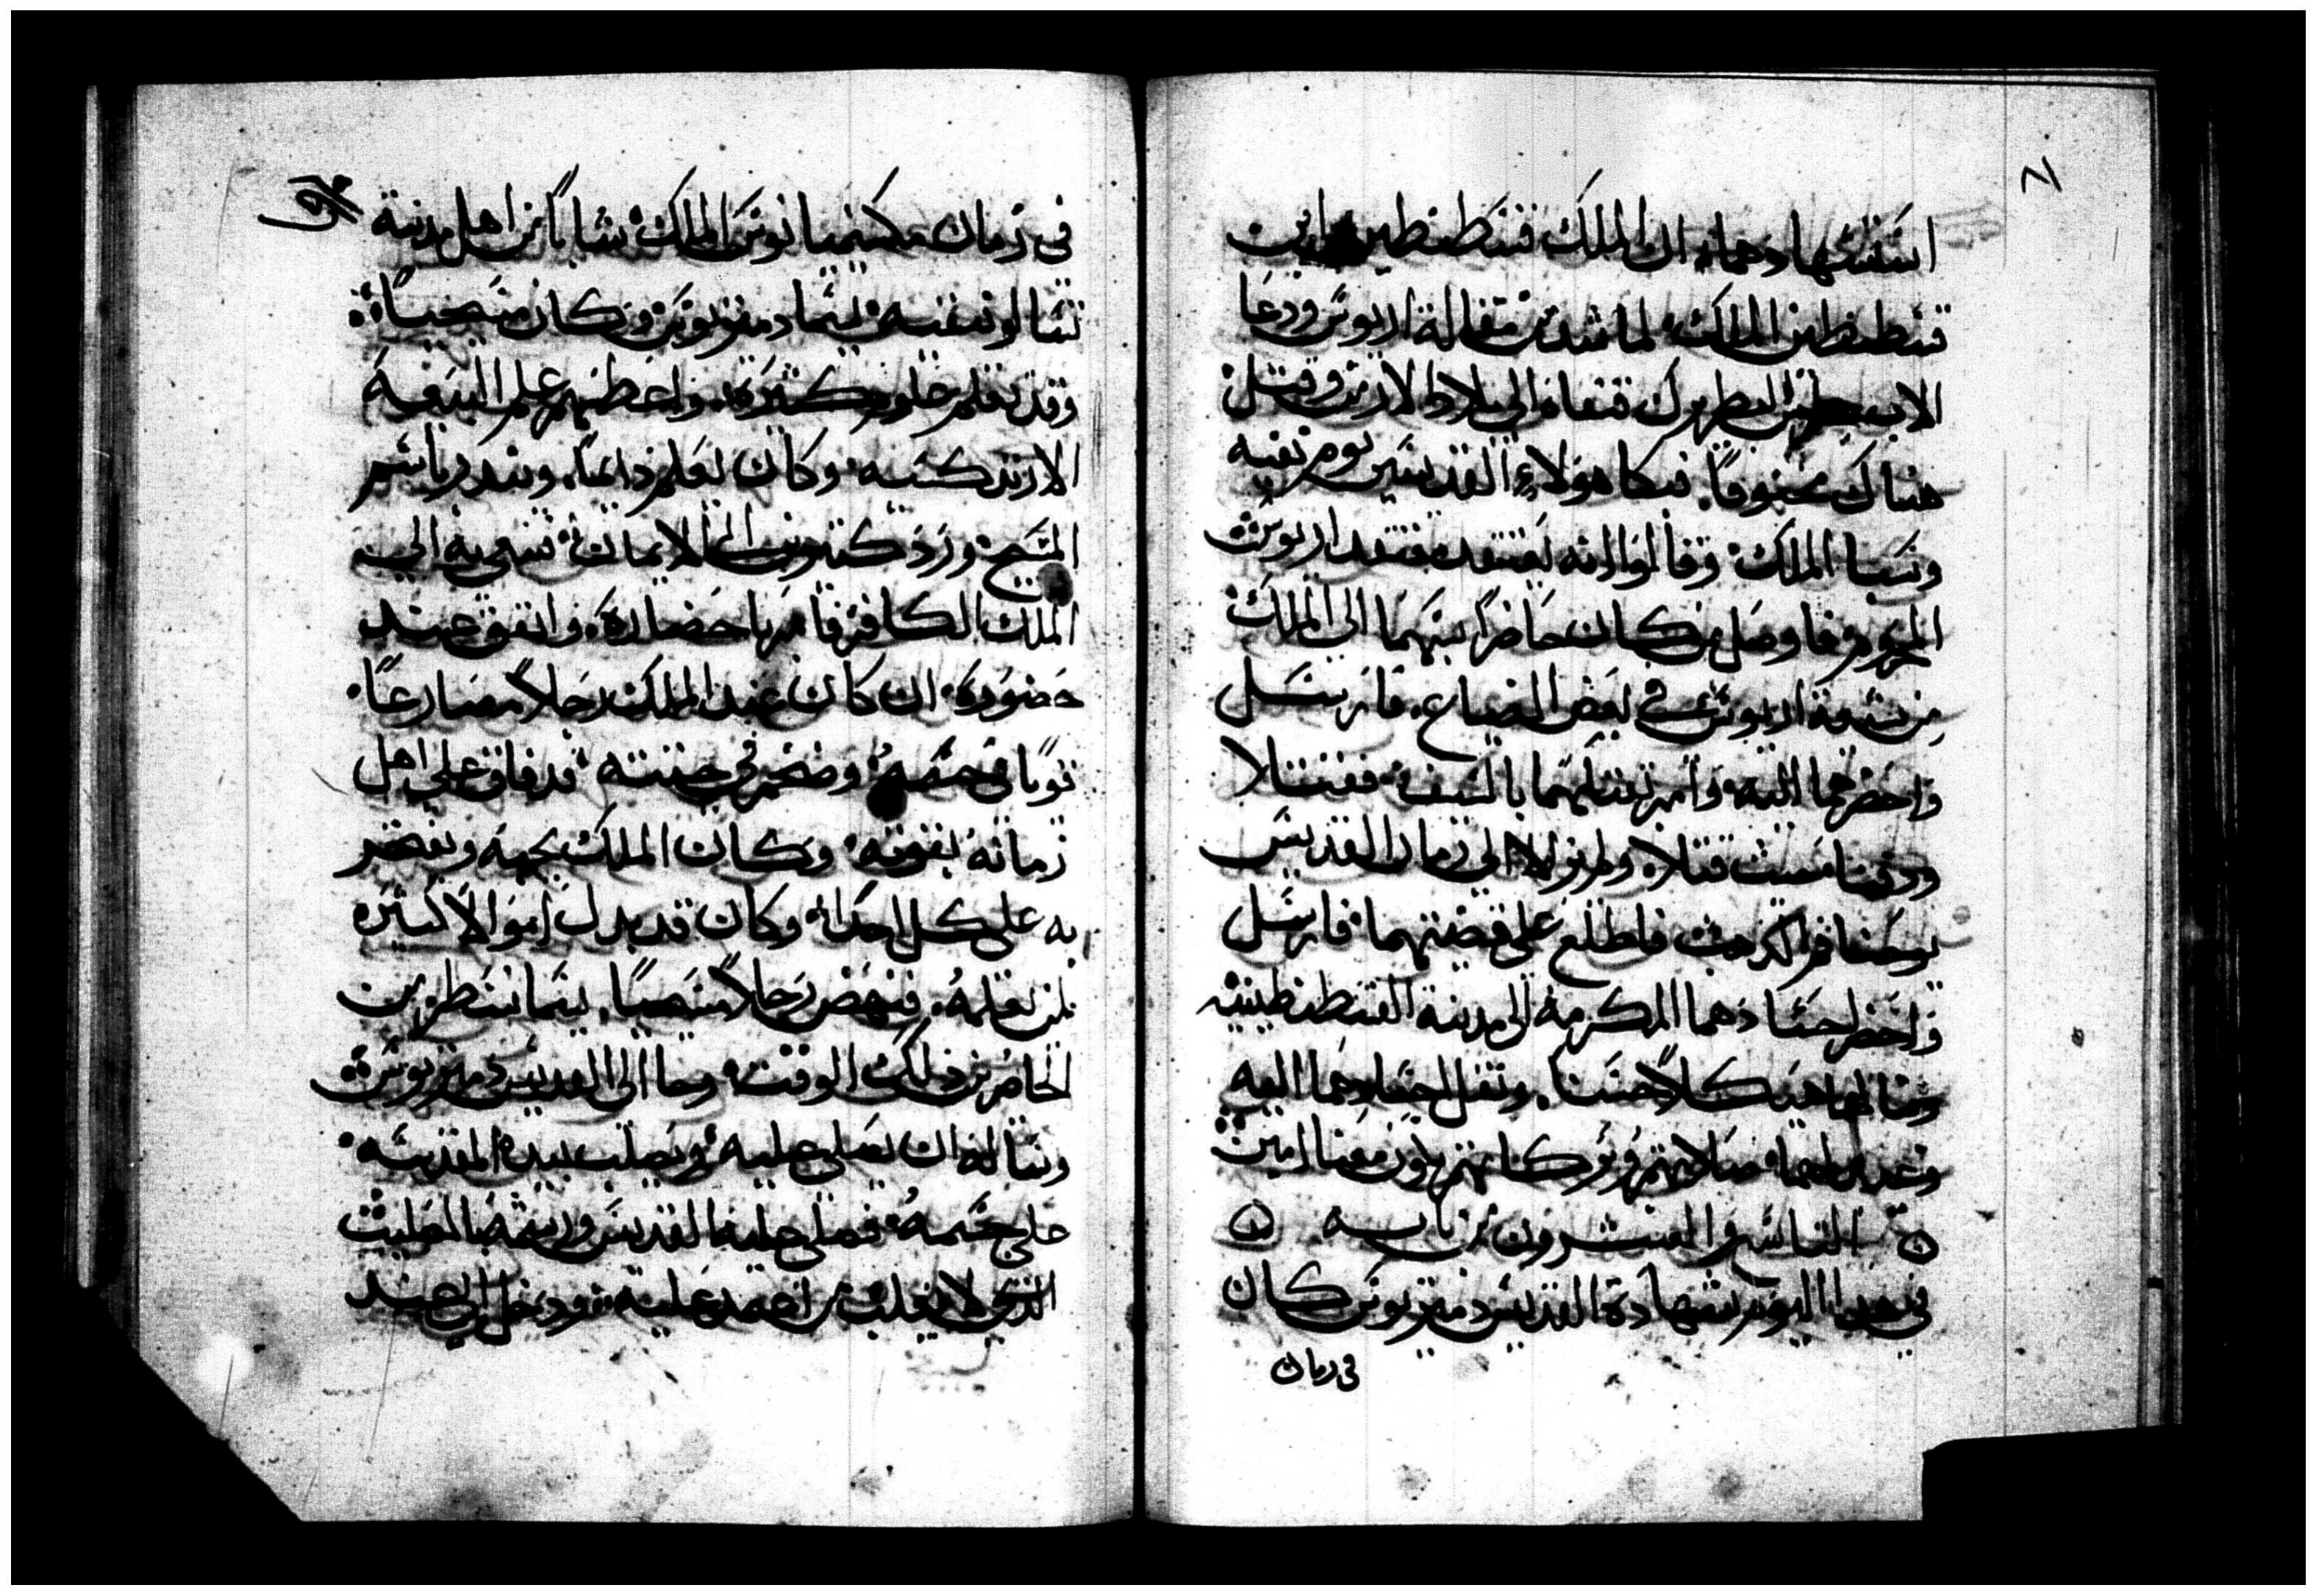 استشهادهما. ان الملك قسطنطين ابن
قسطنطين الملك لما شد من مقالة اريوس ودعا
الاب البطريرك فنفاه الى بلاد الارمن وقتل
هناك مخنوقاً. فبكا هولاء القديسين يوم نفيه
وسبا الملك وقالوا انه يعتقد معتقد اريوس
المحروم فاوصل من كان حاضراً بينهما الى الملك
من شيعة اريوس في بعض الضياع. فارسل
واحضرهما اليه وامر بقتلهما بالسيف فقتلا
ودفنا حيث قتلا. ولم يزالا الى زمان القديس
يوحنا فم الدهب فاطلع على قصتهما فارسل
واحضر اجسادهما المكرمة الى مدينة القسطنطينيه
وبنا لهما هيكلاً حسنا. ونقل اجسادهما اليه
وعيد لهما صلاتهم وبركاتهم تكون معنا امين
التاسع والعشرون من بابه
في هدا اليوم شهادة القديس دمتريوس كان
في زمان
في زمان مكسيميانوس الملك شاباً من اهل مدينة
تسالونيقيه يسما دمتريوس وكان مسيحياً
وقد تعلم علوم كثيرة. واعظمهم علم البيعة
الارتدكسيه وكان يعلم دايماً. ويندر باسم
المسيح ورد كثيرين الى الايمان فسعي به الى
الملك الكافر فامر باحضاره. واتفق عند
حضوره ان كان عند الملك رجلاً مصارعاً
قويا في جسمه وضخم في جتته قد فاق على اهل
زمانه بقوته وكان الملك يحبه ويفتخر
به على كل احد. وكان قد بدل اموالاً كثيره
لمن يغلبه. فنهض رجلاً مسيحياً. يسما نسطر من
الحاضرين دلك الوقت وجا الى القديس دمتريوس
وساله ان يصلي عليه ويصلب بيده المقدسه
على جسمه فصلي عليه القديس ورشمه بالصليب
الدي لا يغلب من اعتمد عليه ودخل الى عند